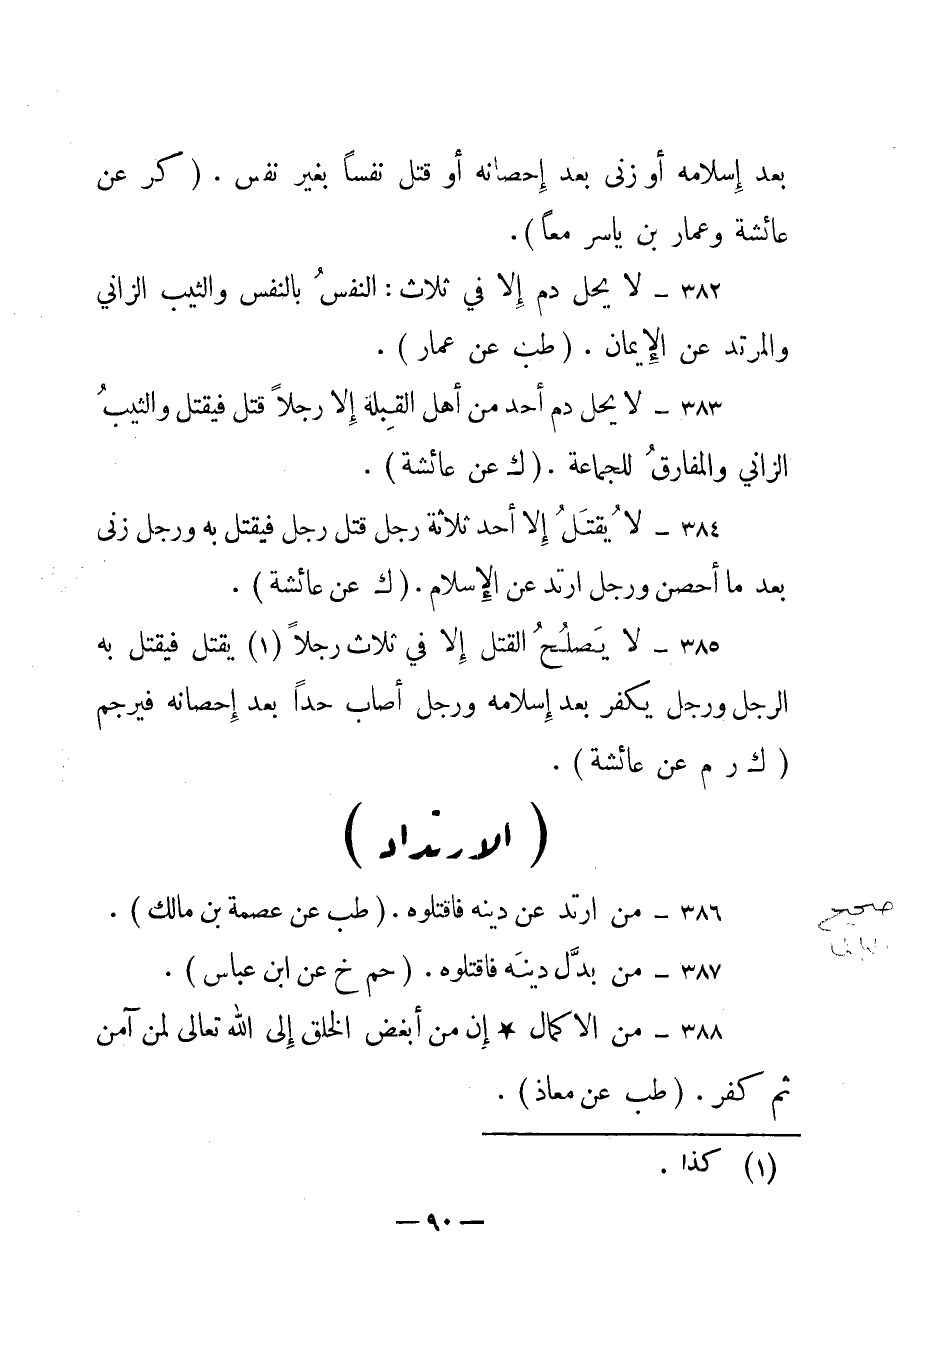 بعد إسلامه أو زنى بعد إحصانه أو قتل نفساً بغير نفس . ( كر عن
عائشة وعمار بن ياسر معاً ) .
٣٨٢ – لا يحل دم إلا في ثلاث : النفسُ بالنفس والثيب الزاني
والمرتد عن الإيمان . ( طب عن عمار ) .
٣٨٣ – لا يحل دم أحد من أهل القبلة إلا رجلاً قتل فيقتل والثيبُ
الزاني والمفارقُ للجماعة . ( ك عن عائشة ) .
٣٨٤ – لا يُقتَلُ إلا أحد ثلاثة رجل قتل رجل فيقتل به ورجل زنى
بعد ما أحصن ورجل ارتد عن الإسلام . ( ك عن عائشة ) .
٣٨٥ – لا يَصلُحُ القتل إلا في ثلاث رجلاً (١) يقتل فيقتل به
الرجل ورجل يكفر بعد إسلامه ورجل أصاب حداً بعد إحصانه فيرجم
( ك ر م عن عائشة ) .
( الارتداد )
٣٨٦ – من ارتد عن دينه فاقتلوه . ( طب عن عصمة بن مالك ) .
صحيح
٣٨٧ – من بدَّل دينَه فاقتلوه . ( حم خ عن ابن عباس ) .
٣٨٨ – من الاكمال ★ إن من أبغض الخلق إلى الله تعالى لمن آمن
ثم كفر . ( طب عن معاذ ) .
(١) كذا .
— ٩٠ —